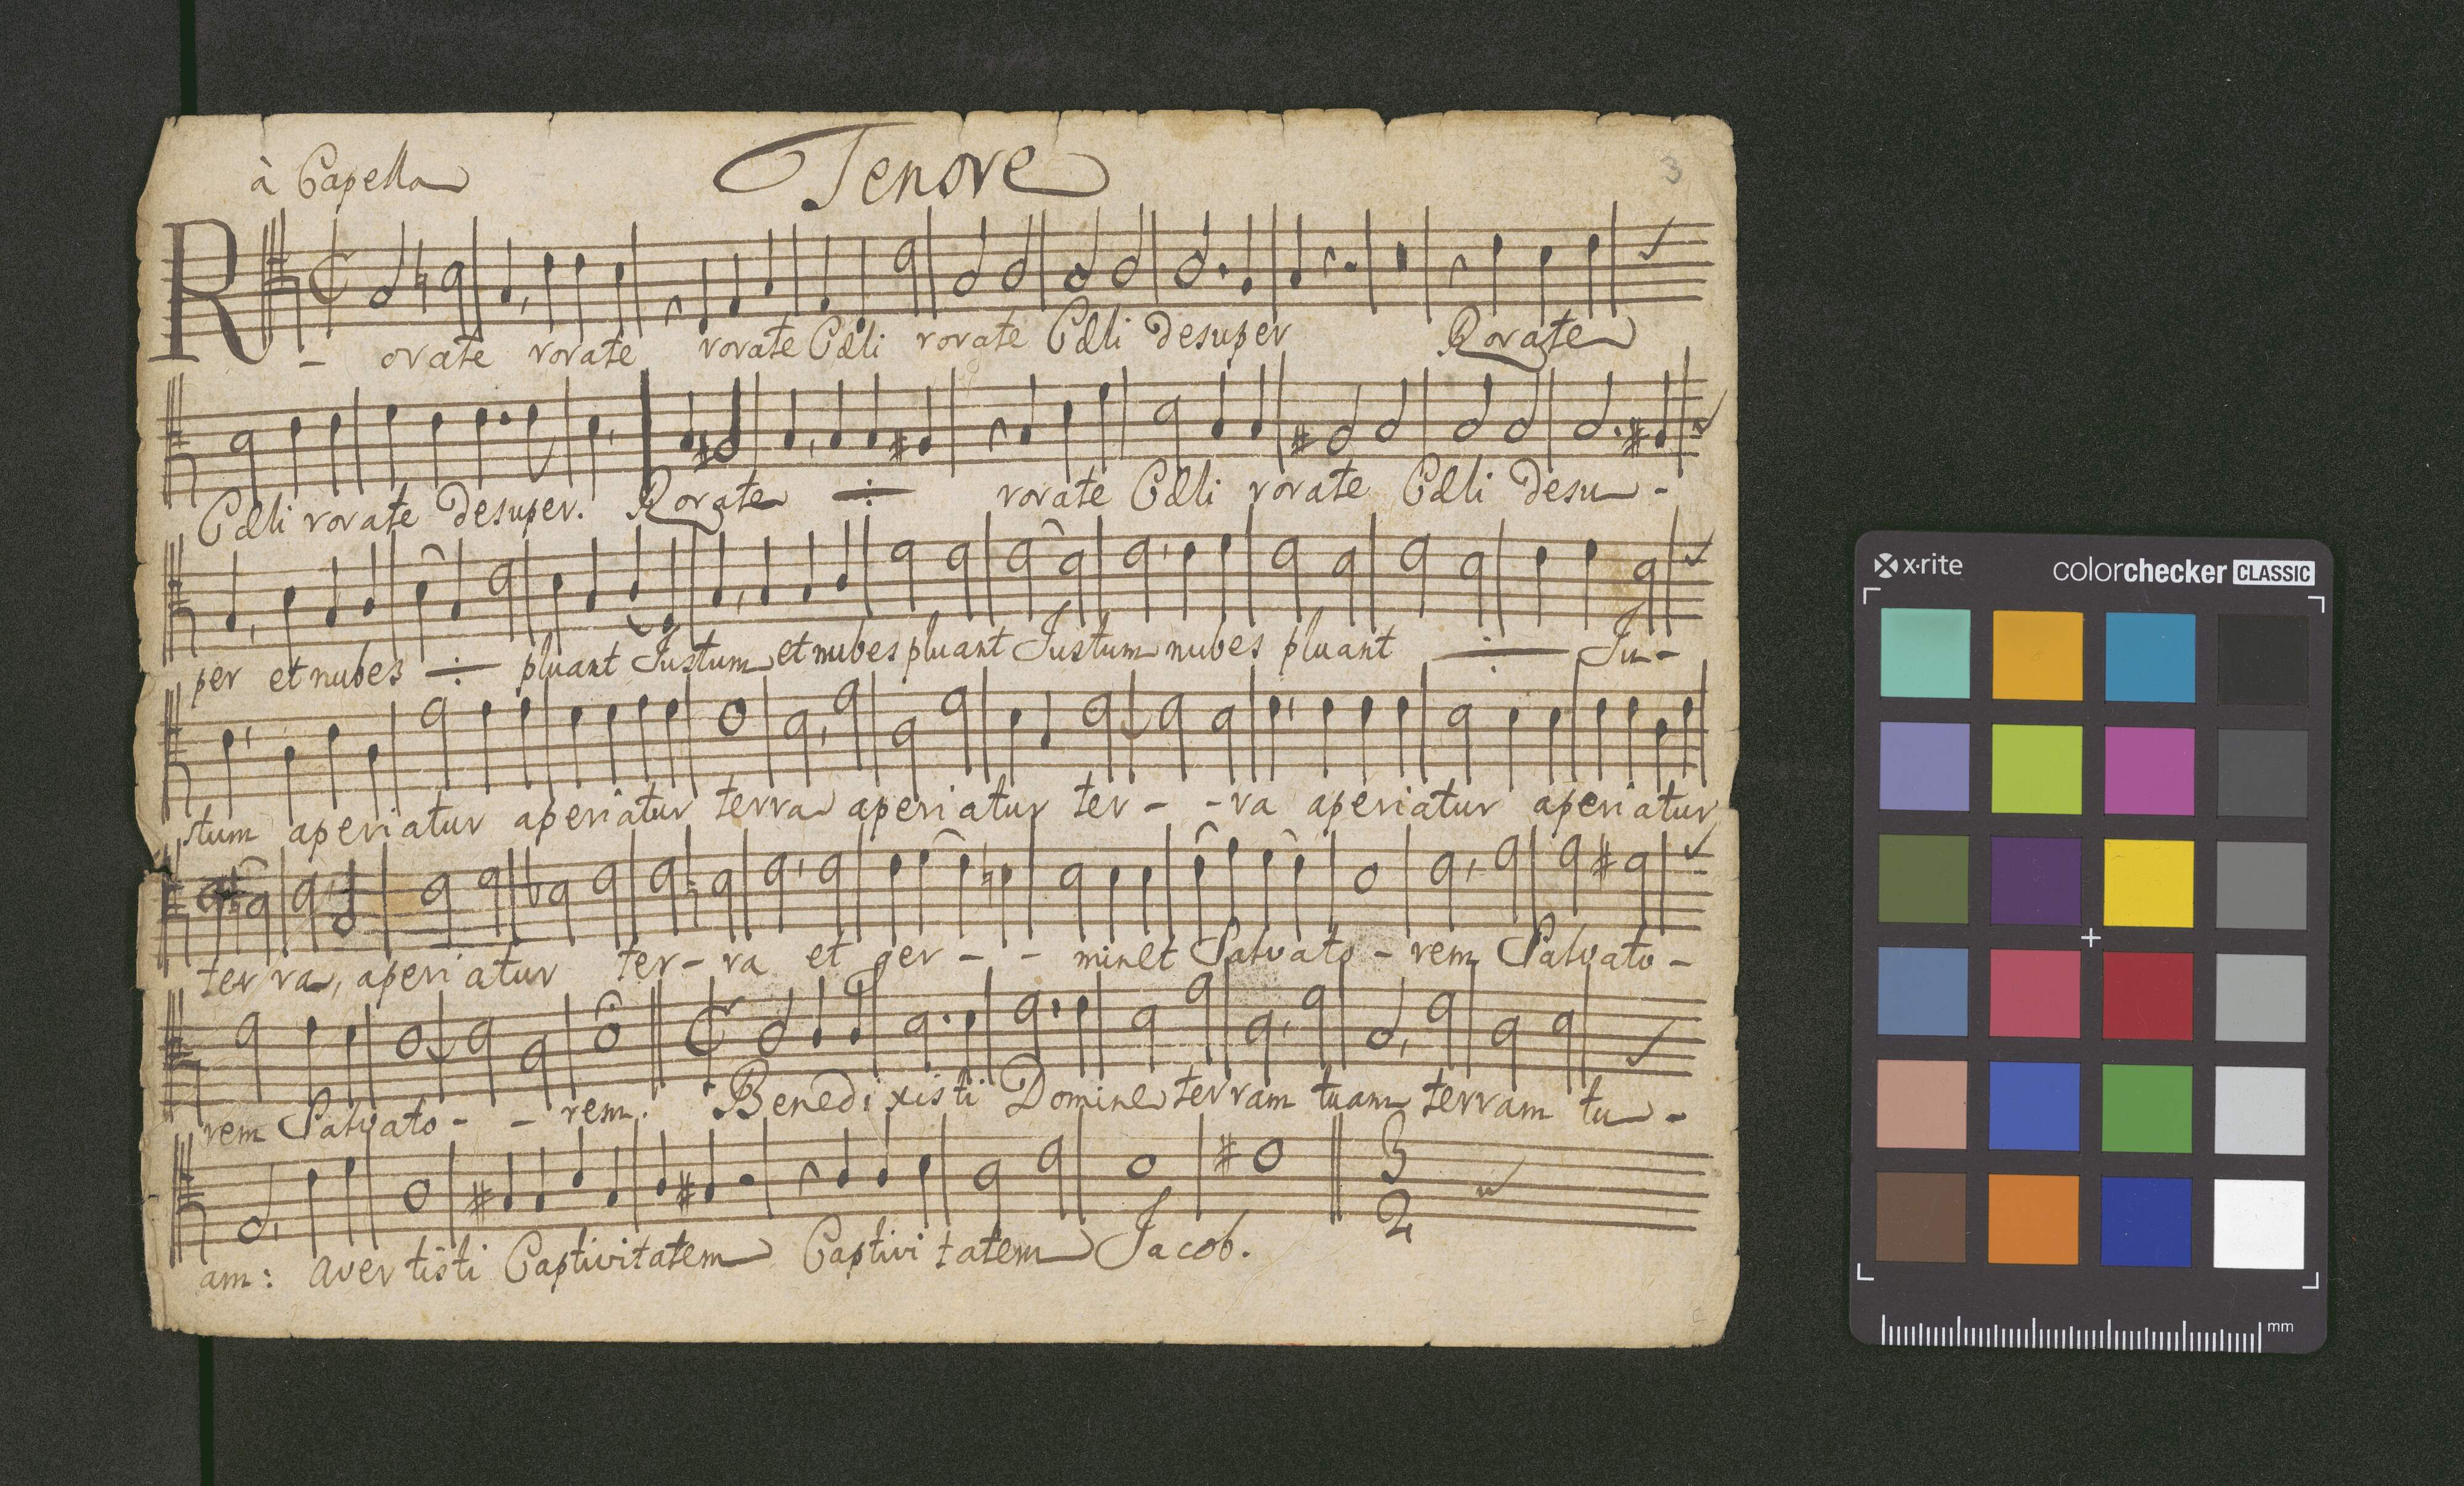 à Capella
Tenore
3
R - orate rorate rorate Cæli rorate Cæli desuper Rorate
Cæli rorate desuper. Rorate ÷ rorate Cæli rorate Cæli desu -
per et nubes ÷ pluant Justum et nubes pluant Justum nubes pluant ÷ Ju -
stum aperiatur aperiatur terra aperiatur ter - - ra aperiatur aperiatur
terra, aperiatur ter - ra et ger - - minet Salvato - rem Salvato -
rem Salvato - - rem. Benedixisti Domine terram tuam terram tu -
3
2
am: avertisti Captivitatem Captivitatem Jacob.
x·rite
colorchecker CLASSIC
mm